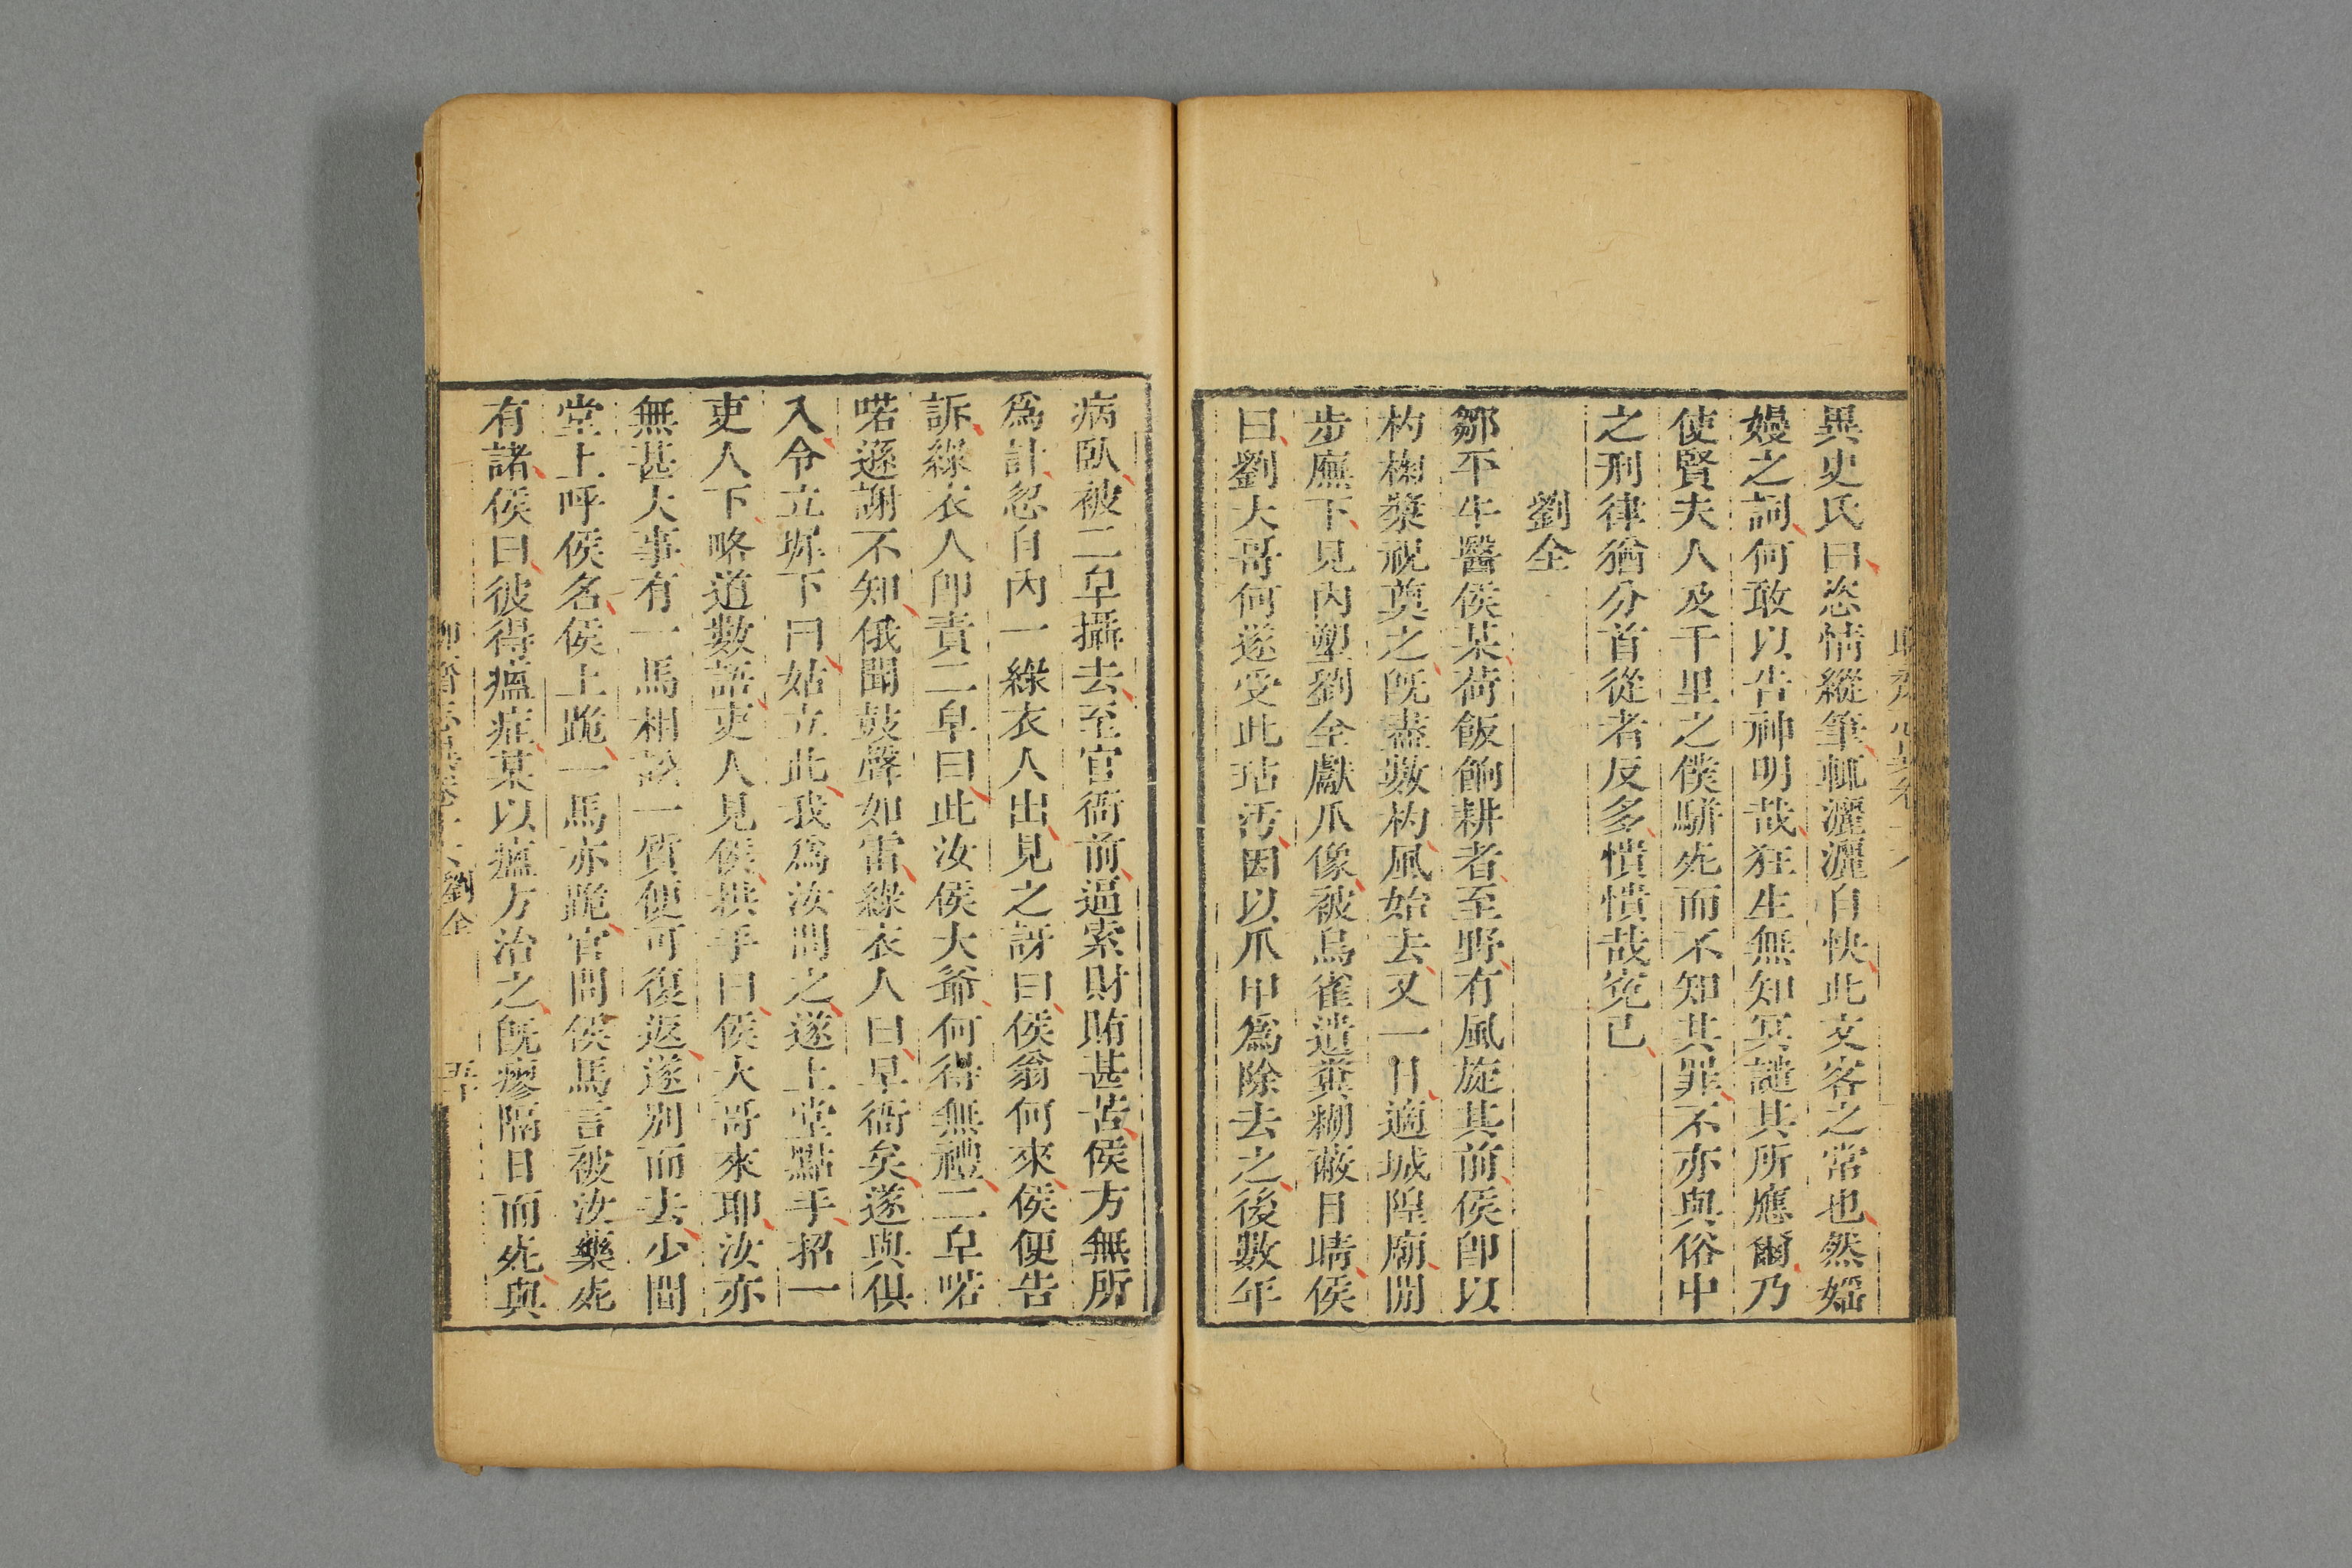 異史氏曰恣情縱筆輒灑灑自快此文客之常也然婬
嫚之詞何敢以告神明哉狂生無知冥譴其所應爾乃
使賢夫人及千里之僕駢死而不知其罪不亦與俗中
之刑律猶分首從者反多憒憒哉寃已
劉全
鄒平牛醫侯某荷飯餉耕者至野有風旋其前侯卽以
杓掬漿祝奠之旣盡數杓風始去又一日適城隍廟閒
步廡下見內塑劉全獻瓜像被鳥雀遺糞糊蔽目睛侯
曰劉大哥何遂受此玷汚因以爪甲為除去之後數年
病臥被二皁攝去至官衙前逼索財賄甚苦侯方無所
為計忽自內一綠衣人出見之訝曰侯翁何來侯便告
訴綠衣人卽責二皁曰此汝侯大爺何得無禮二皁喏
喏遜謝不知俄聞鼓聲如雷綠衣人曰早衙矣遂與俱
入令立墀下曰姑立此我為汝問之遂上堂點手招一
吏人下略道數語吏人見侯拱手曰侯大哥來耶汝亦
無甚大事有一馬相訟一質便可復返遂別而去少間
堂上呼侯名侯上跪一馬亦跪官問侯馬言被汝藥死
有諸侯曰彼得瘟症某以瘟方治之旣瘳隔日而死與
劉全